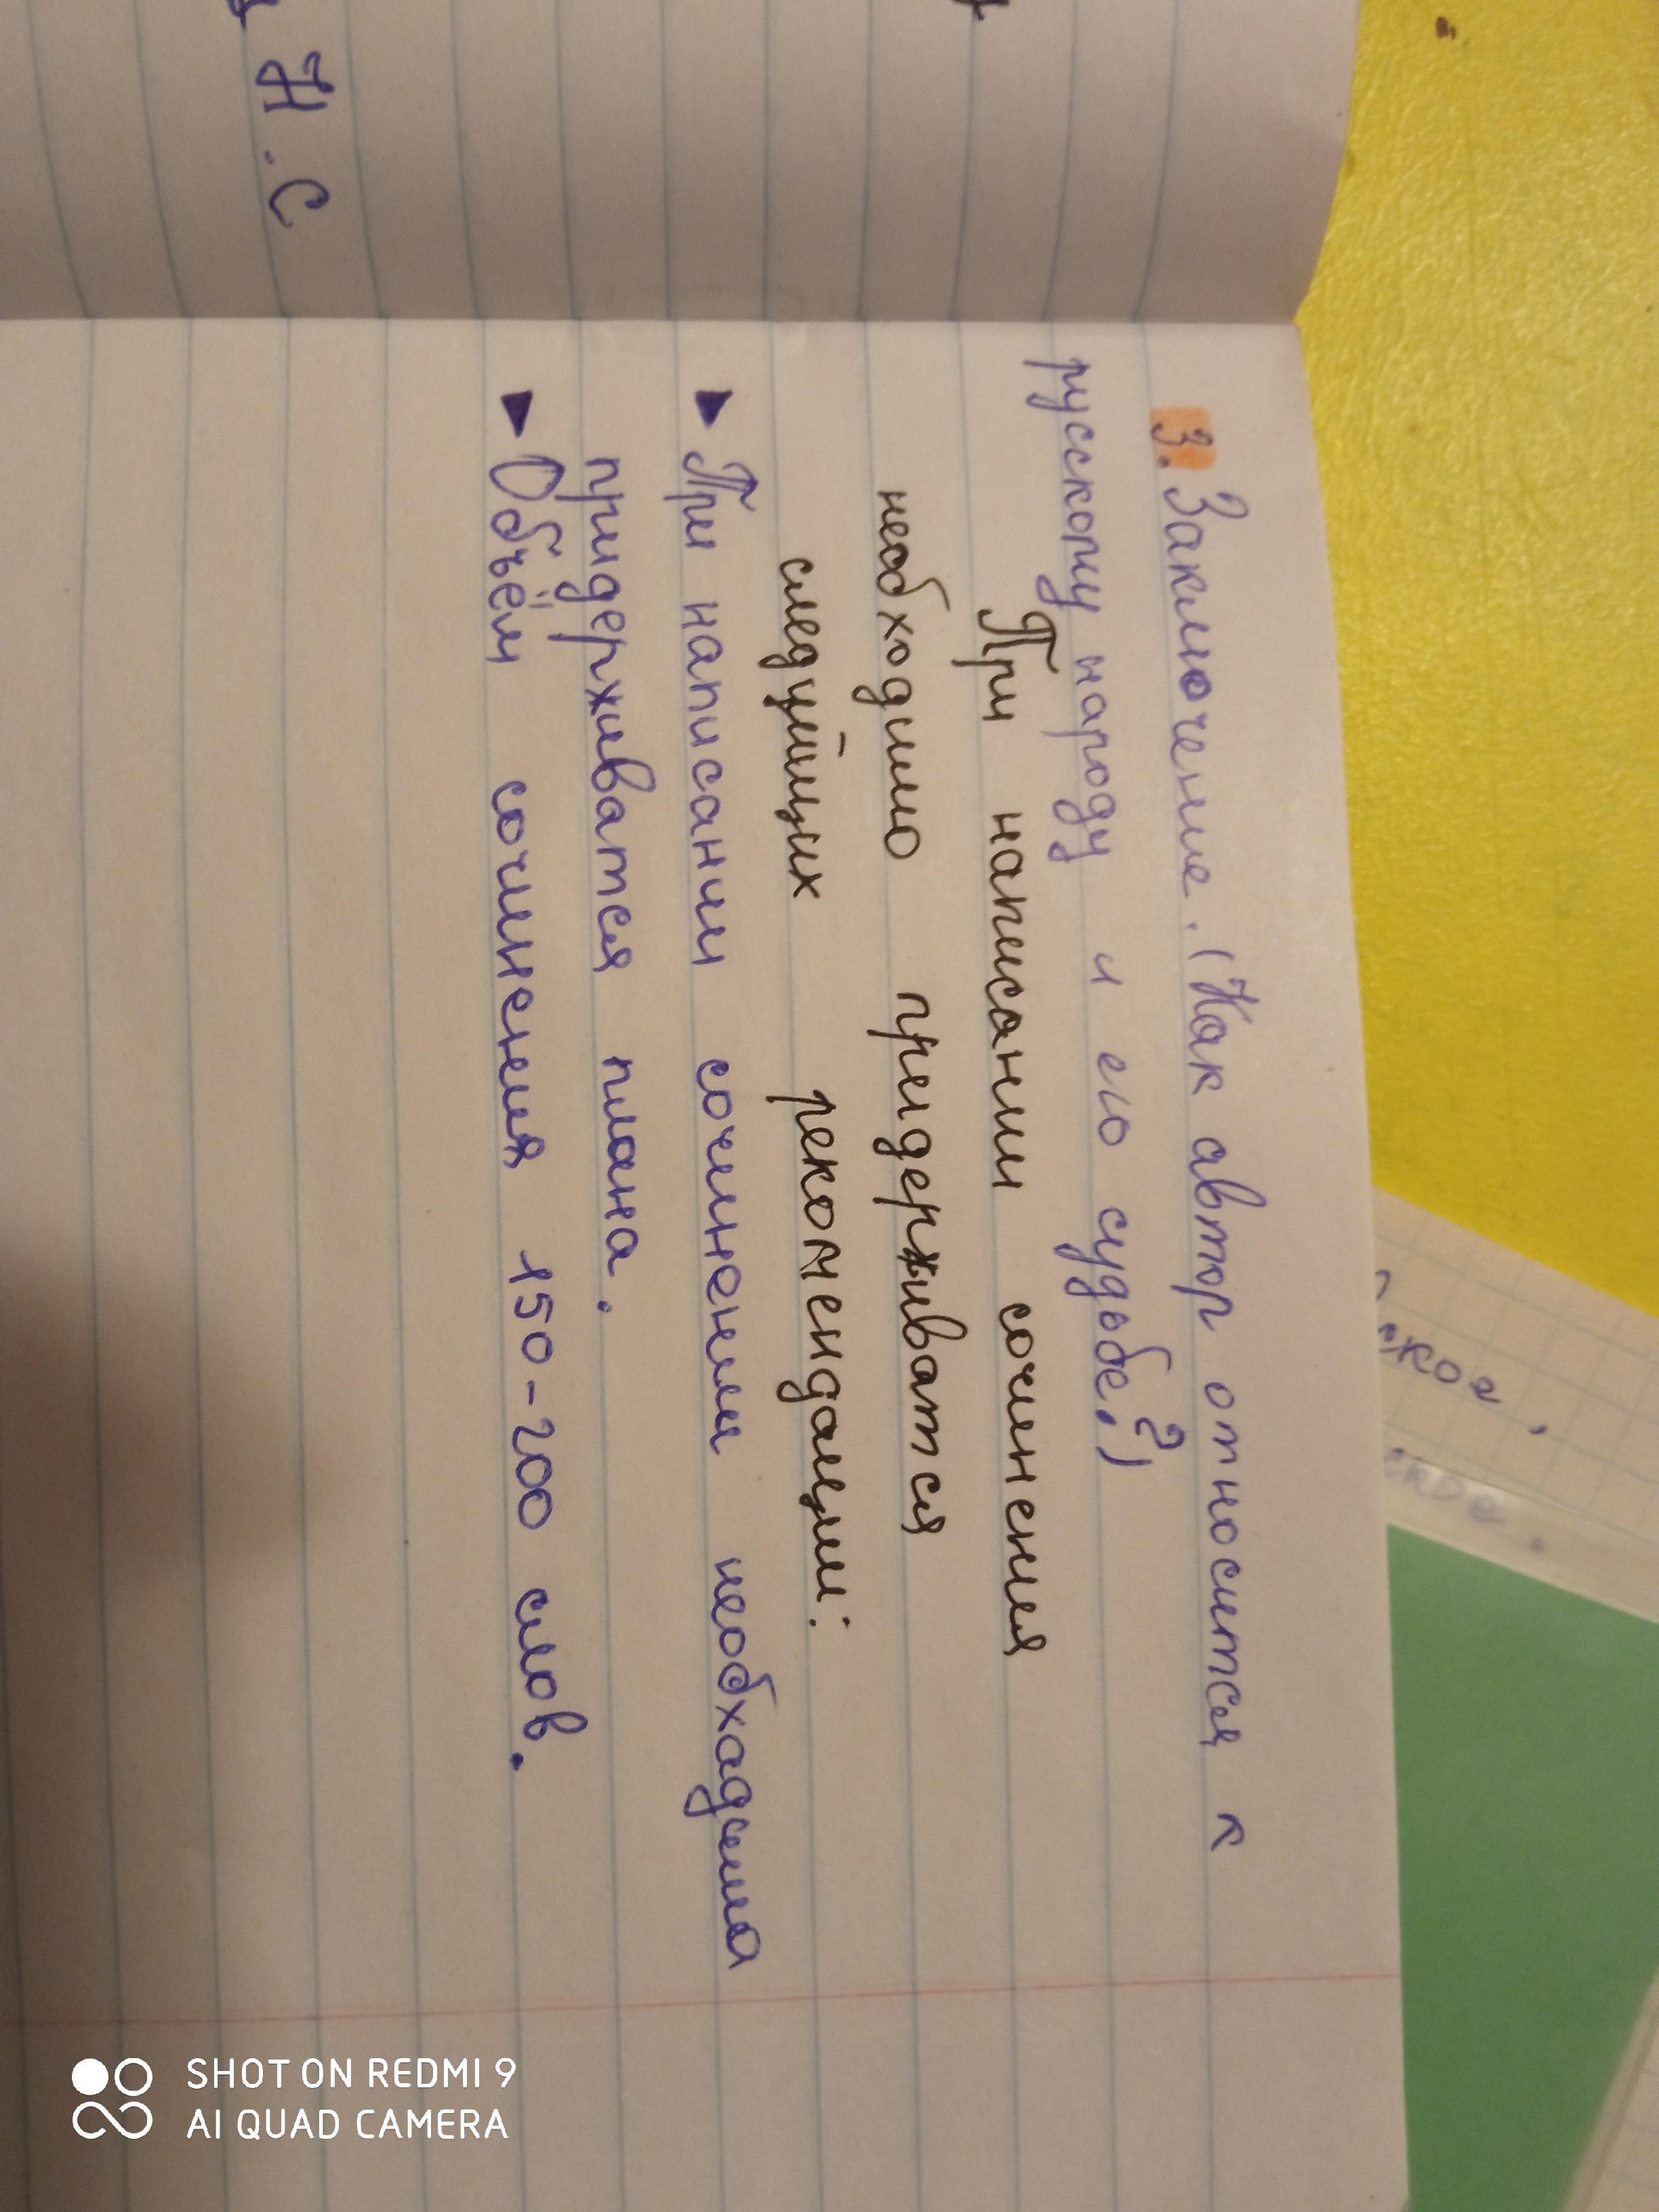 Н.С
3. Заключение. (Как автор относится к
русскому народу и его судьбе?)
При написании сочинения
необходимо придерживатся
следуйщих рекомендации:
▶ При написании сочинении необхадима
придерживатся плана.
▶ Объём сочинения 150-200 слов.
SHOT ON REDMI 9
AI QUAD CAMERA